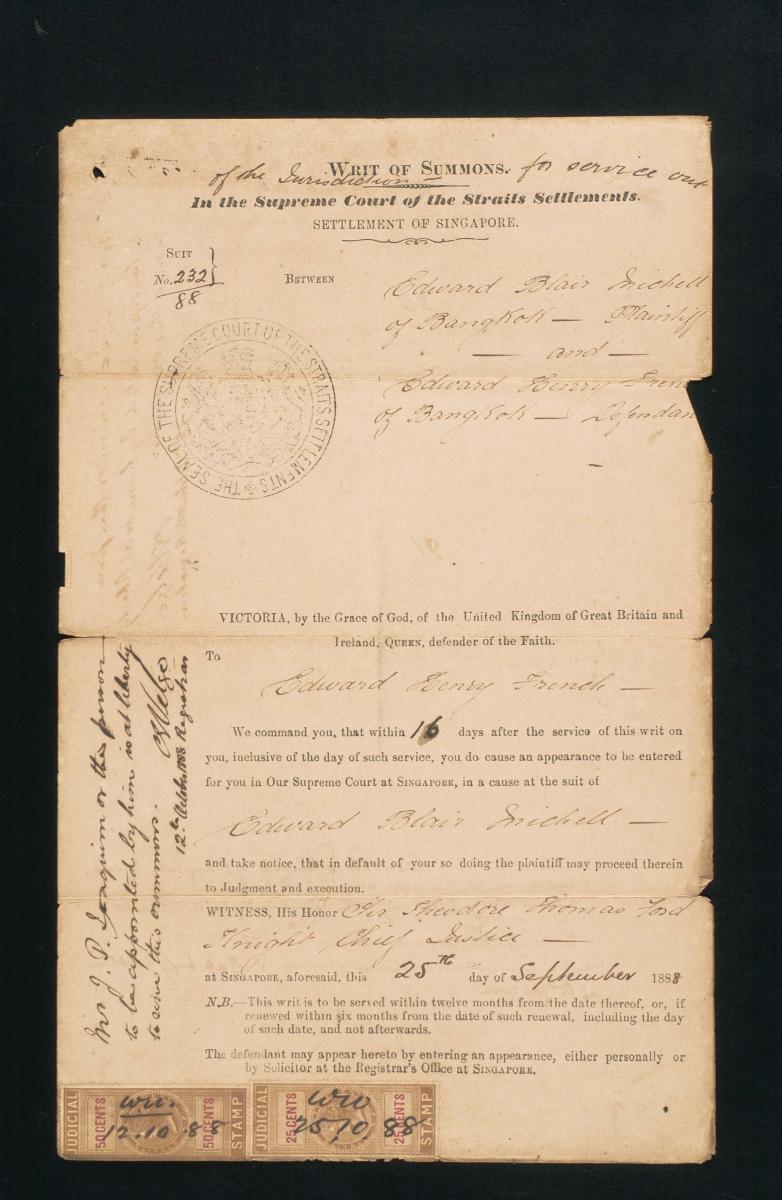 WRIT OF SUMMONS. for service out
of the Jurisdiction
In the Supreme Court of the Straits Settlements.
SETTLEMENT OF SINGAPORE.
SUIT
No. 232
88
BETWEEN
Edward Blair Michell
of Bangkok — Plaintiff
— and —
Edward Henry Fren
of Bangkok — Defendan
THE SEAL OF THE SUPREME COURT OF THE STRAITS SETTLEMENTS
VICTORIA, by the Grace of God, of the United Kingdom of Great Britain and
Ireland, QUEEN, defender of the Faith.
To
Edward Henry French —
We command you, that within 16 days after the service of this writ on
you, inclusive of the day of such service, you do cause an appearance to be entered
for you in Our Supreme Court at SINGAPORE, in a cause at the suit of
Edward Blair Michell —
and take notice, that in default of your so doing the plaintiff may proceed therein
to Judgment and execution.
WITNESS, His Honor Sir Theodore Thomas Ford
Knight Chief Justice —
at SINGAPORE, aforesaid, this 25th day of September 1888
N.B.—This writ is to be served within twelve months from the date thereof, or, if
renewed within six months from the date of such renewal, including the day
of such date, and not afterwards.
The defendant may appear hereto by entering an appearance, either personally or
by Solicitor at the Registrar's Office at SINGAPORE.
Mr J. P. Joaquim or the person
to be appointed by him is at liberty
to serve this summons.
12th October 1888 Registrar
JUDICIAL 50 CENTS 50 CENTS STAMP
12.10.88
JUDICIAL 25 CENTS 25 CENTS STAMP
88